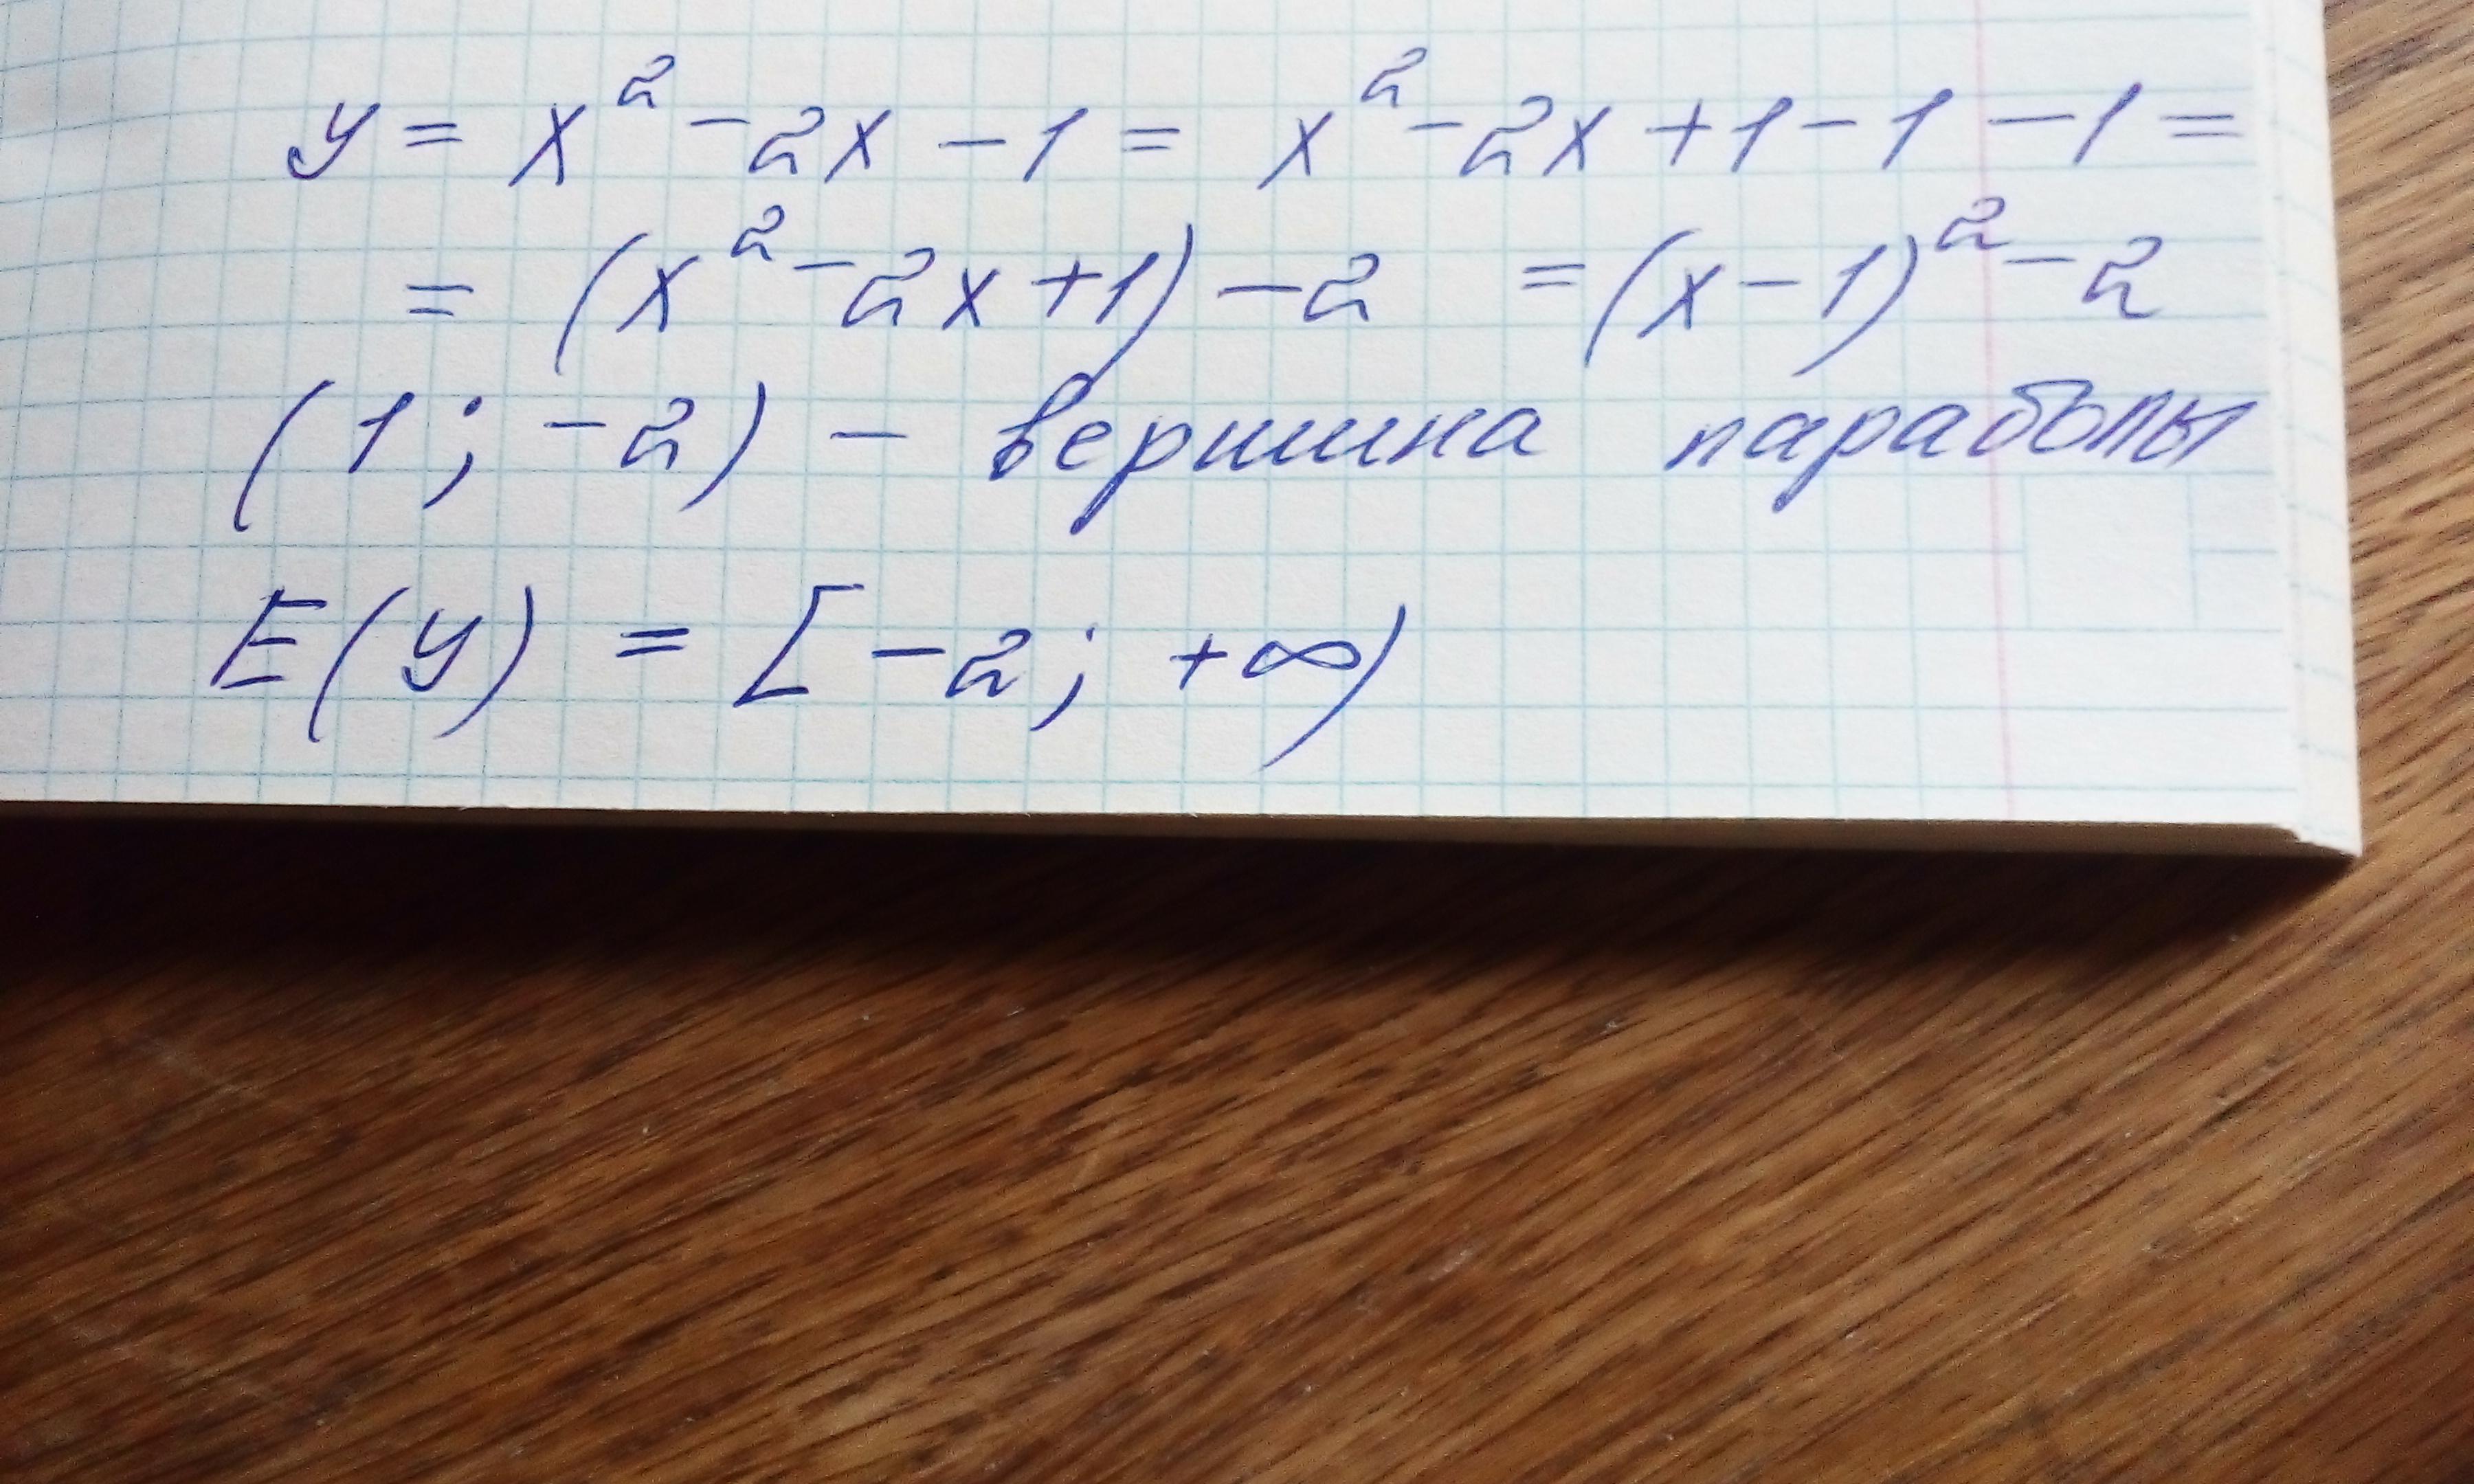 y = x² - 2x - 1 = x² - 2x + 1 - 1 - 1 =
= (x² - 2x + 1) - 2 = (x - 1)² - 2
(1; -2) - вершина параболы
E(y) = [-2; +∞)